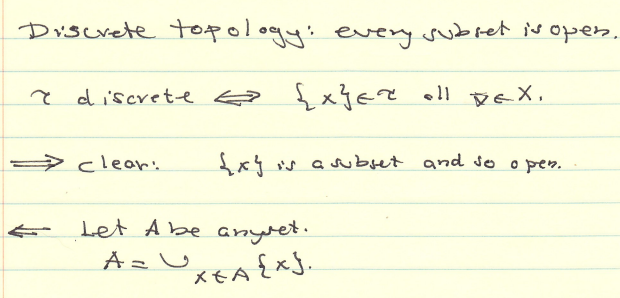 Discrete topology: every subset is open.
τ discrete ⇔ {x}∈τ all x∈X.
⇒ clear: {x} is a subset and so open.
⇐ Let A be any set.
A = ∪_{x∈A} {x}.